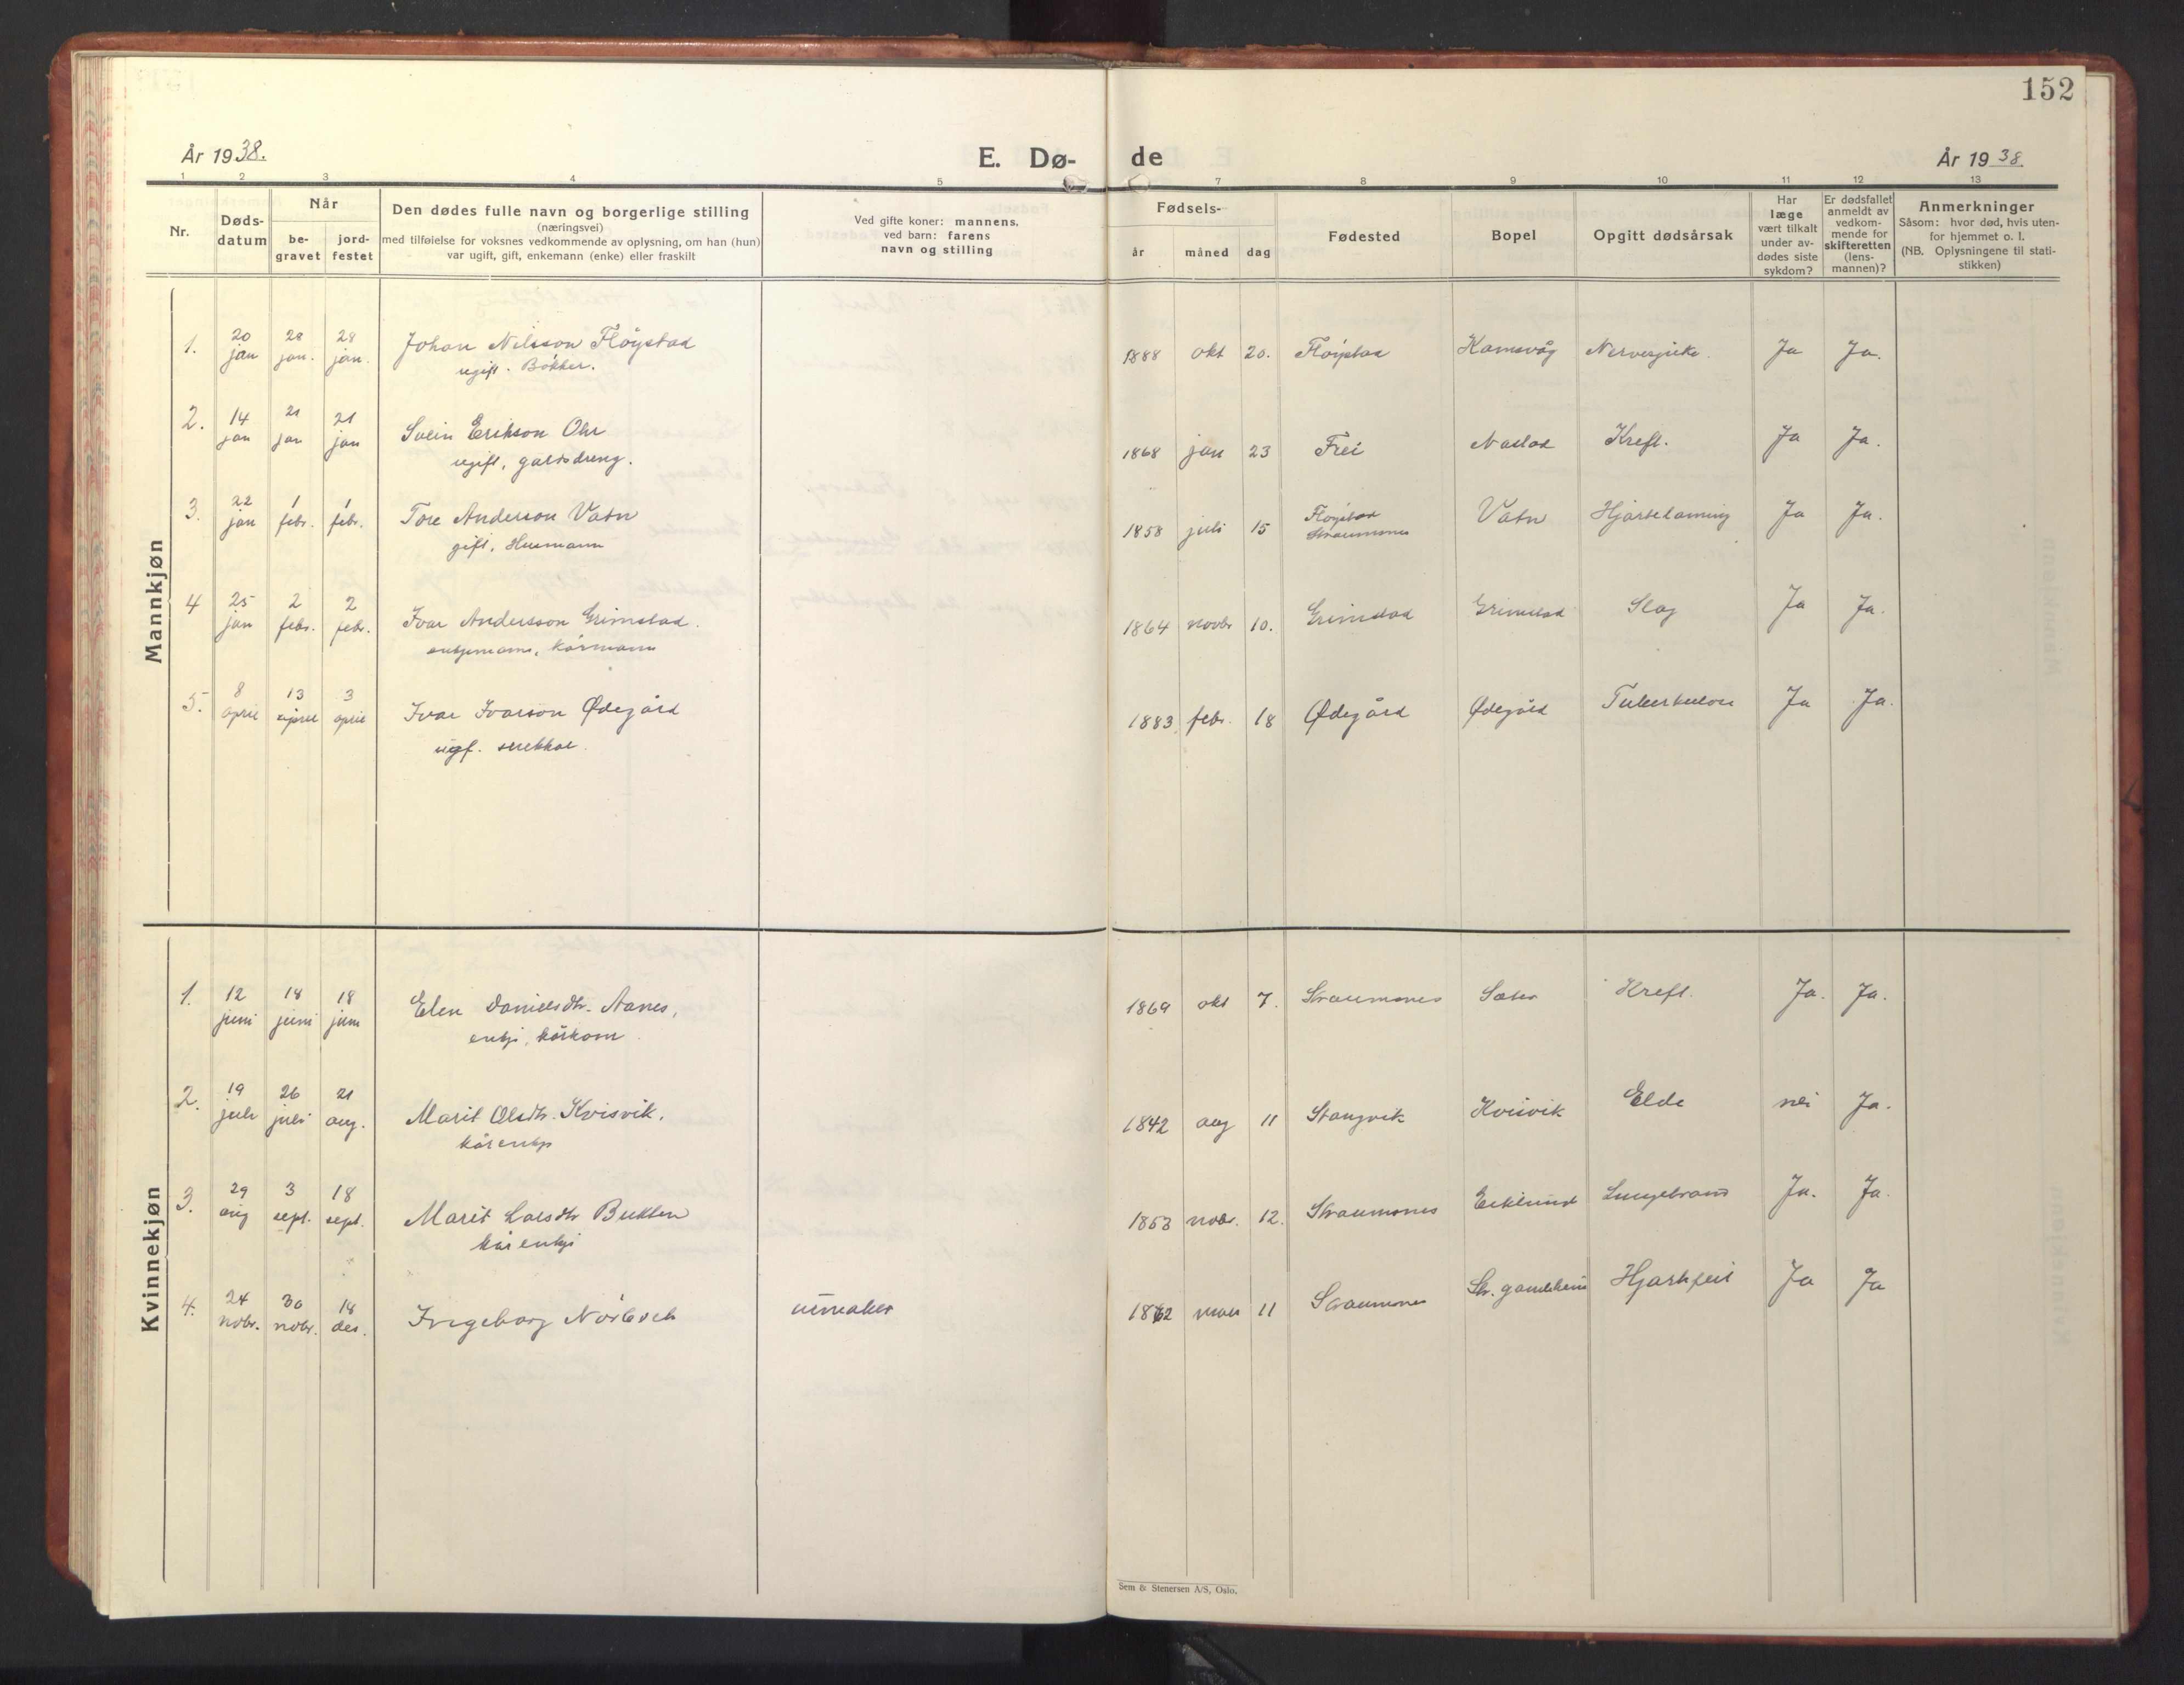 152
År 1938.
E. Dø-
de
År 1938.
1 2 3 4 5
7 8 9 10 11 12 13
Nr.
Døds-
datum
Når
be-
gravet
jord-
festet
Den dødes fulle navn og borgerlige stilling
(næringsvei)
med tilføielse for voksnes vedkommende av oplysning, om han (hun)
var ugift, gift, enkemann (enke) eller fraskilt
Ved gifte koner: mannens,
ved barn: farens
navn og stilling
Fødsels-
år måned dag
Fødested
Bopel
Opgitt dødsårsak
Har
læge
vært tilkalt
under av-
dødes siste
sykdom?
Er dødsfallet
anmeldt av
vedkom-
mende for
skifteretten
(lens-
mannen)?
Anmerkninger
Såsom: hvor død, hvis uten-
for hjemmet o. l.
(NB. Oplysningene til stati-
stikken)
Mannkjøn
1. 20 jan 28 jan. 28 jan. Johan Nilsson Fløystad 1888 okt 20. Fløystad Kamsvåg Nervesjuke. Ja Ja.
ugift. Bøkker.
2. 14 jan 21 jan 21 jan Svein Erikson Ohr 1868 jan 23 Frei Nastad Kreft. Ja Ja.
ugift, gardsdreng.
3. 22 jan 1 febr. 1 febr. Tore Anderson Vatn 1858 juli 15 Fløystad Straumsnes Vatn Hjartelaming Ja Ja.
gift, Husmann
4 25 jan 2 febr. 2 febr. Ivar Andersson Grimstad. 1864 novbr 10. Grimstad Grimstad Slag Ja Ja.
enkjemann, kårmann
5. 8 april 13 april 3 april Ivar Ivarson Ødegård 1883 febr. 18 Ødegård Ødegård Tuberkulose Ja Ja.
ugf. snekkar.
Kvinnekjøn
1. 12 juni 18 juni 18 juni Elen Danielsdtr. Aanes, 1869 okt 7. Straumsnes Sæter Kreft. Ja. Ja.
enkje, kårkone
2. 19 juli 26 juli 21 aug. Marit Olsdtr. Kvisvik, 1842 aug 11 Stangvik Kvisvik Elde nei Ja.
kårenkje
3. 29 aug 3 sept. 18 sept. Marit Larsdtr Bukten 1853 nobr. 12. Straumsnes Eiklund Lungebrand Ja. Ja.
kårenkje
4. 24 nobr. 30 nobr. 18 des. Ingeborg 1862 mars 11 Straumsnes Str. gamleheim Hjartfeil Ja Ja
Sem & Stenersen A/S, Oslo.